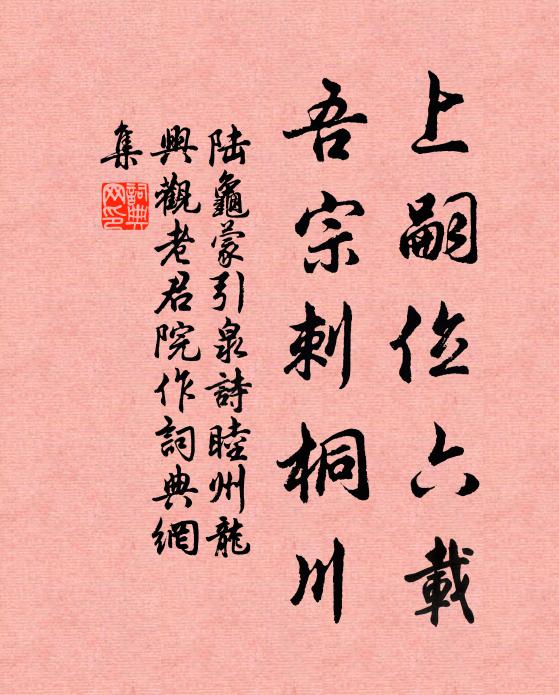 上嗣位六載
吾宗刺桐川
陆龜蒙引泉詩睦州龍
興觀老君院作詞典網
集
詞典
网印